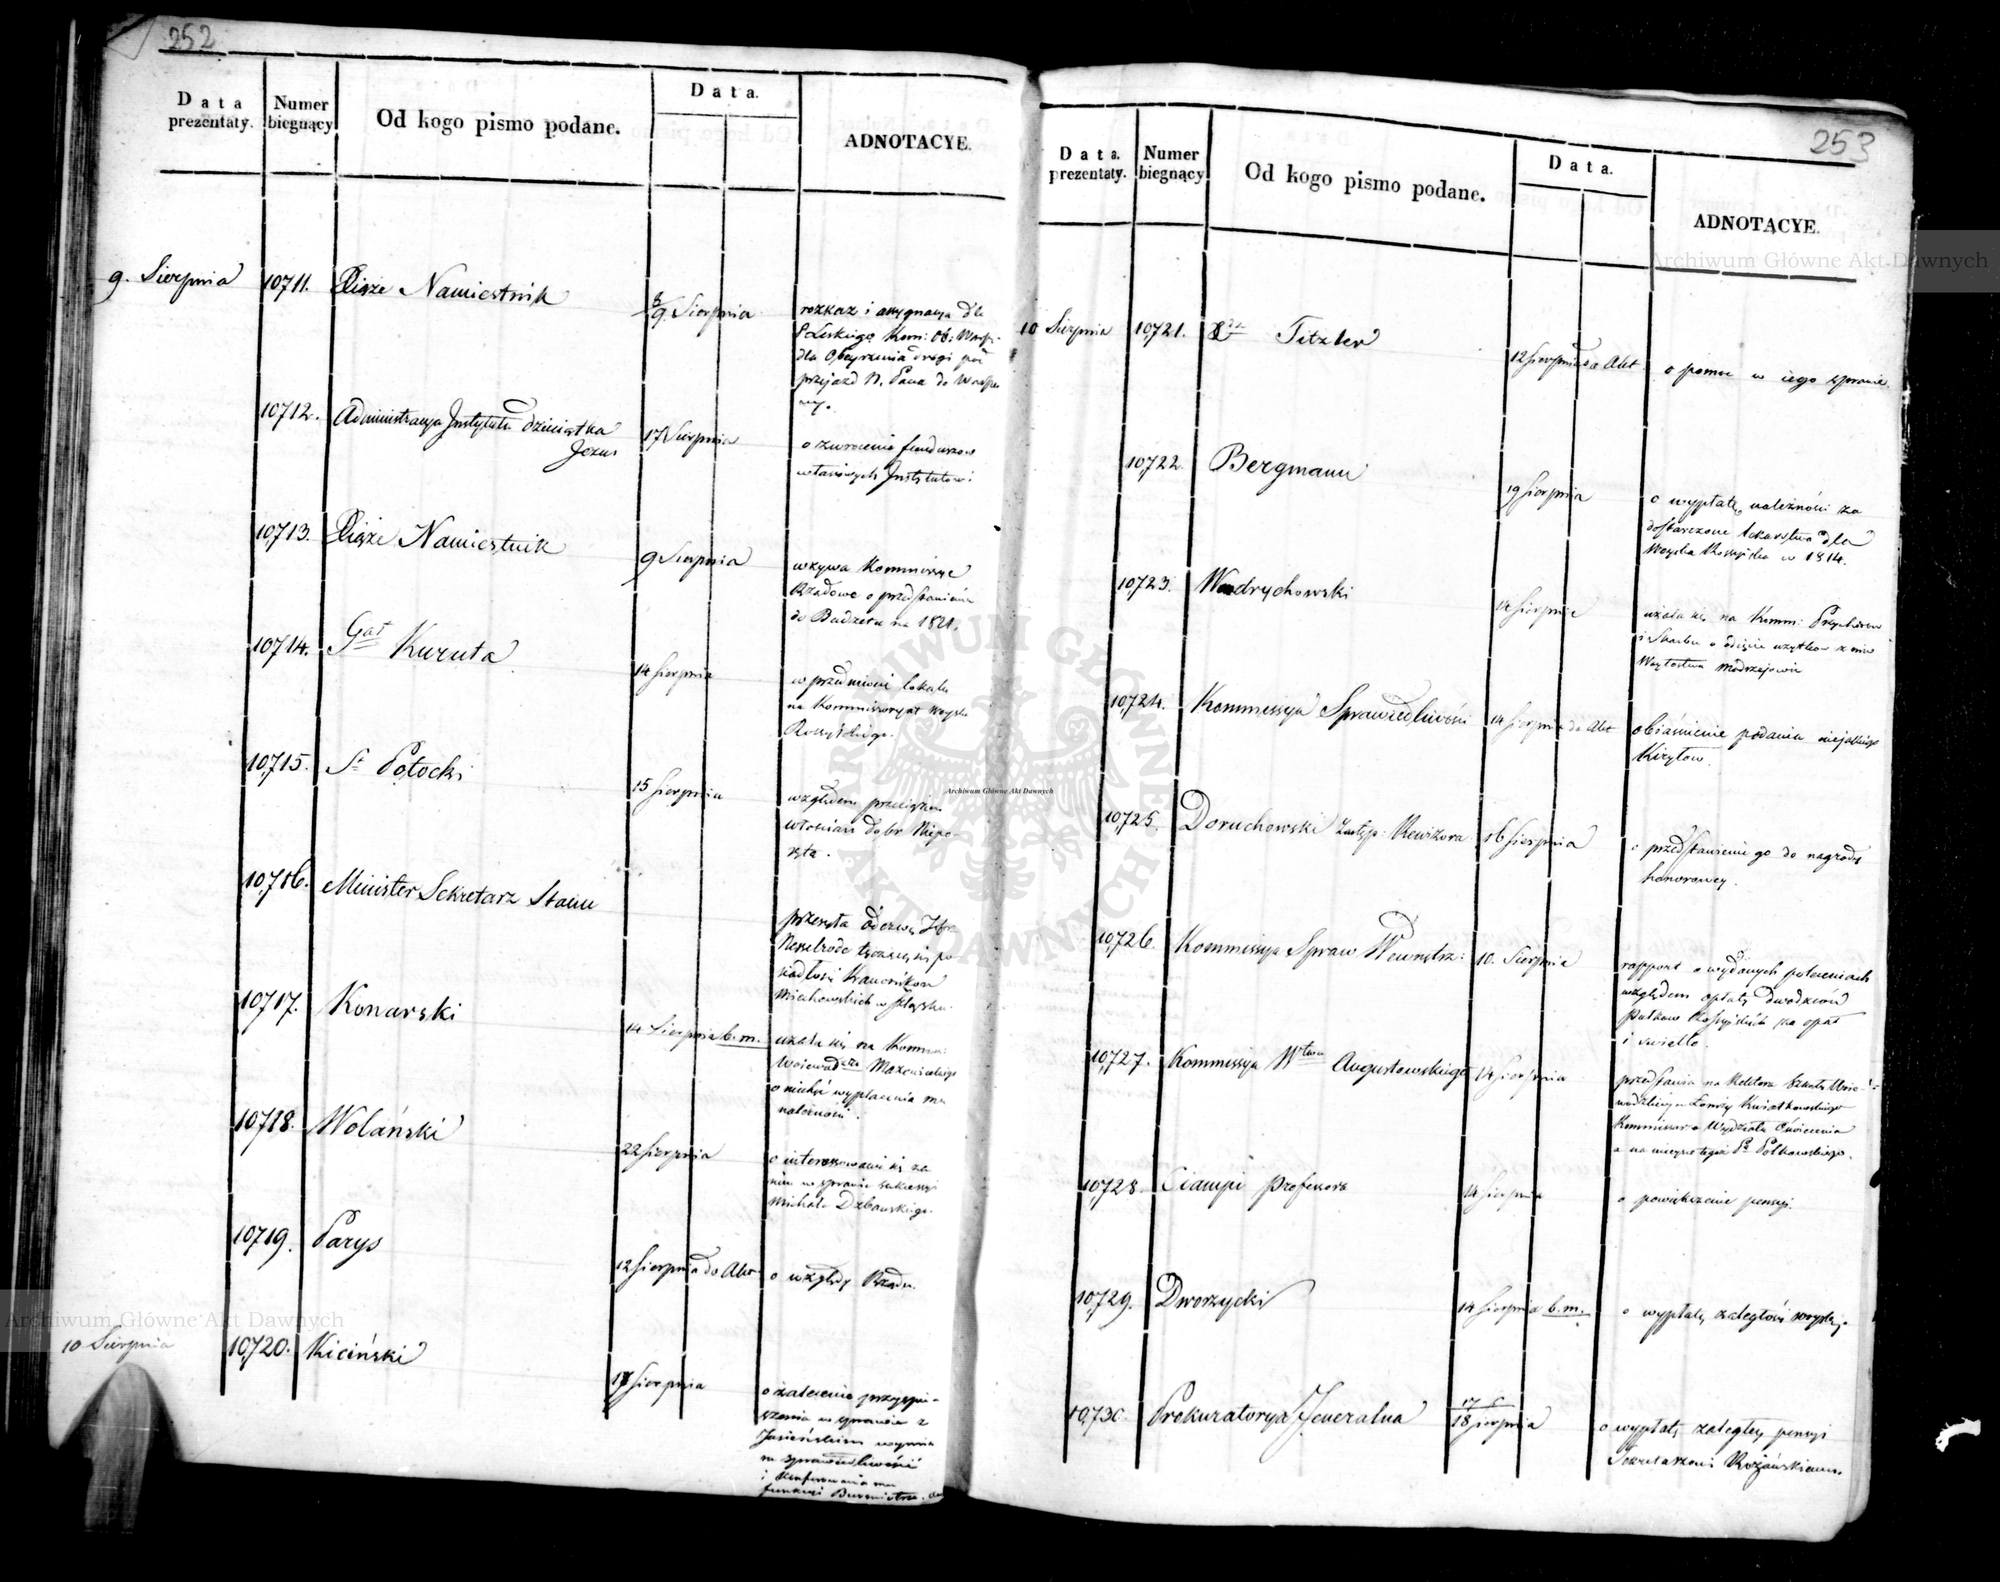 252
Data prezentaty.
Numer biegnący
Od kogo pismo podane.
Data.
ADNOTACYE.
9. Sierpnia
10711.
Xiąże Namiestnik
8/9. Sierpnia
rozkaz i assygnacya dla
dla Obeyrzenia drogi pod
przejazd N. Pana do
10712.
Administracya Instytutu Dzieciątka
Jezus
17 Sierpnia
o zwrocenie funduszow
Instytutowi
10713.
Xiąże Namiestnik
9 Sierpnia
wzywa Kommissye
Rządowe o przedstawienie
do Budżetu na 1821.
10714.
Gał Kuruta
14 Sierpnia
w przedmiocie lokalu
na Kommissoryat Woyska
Rossyiskiego.
10715.
St Potocki
15 Sierpnia
względem
włościan dobr Niepo-
ręta.
10716.
Minister Sekretarz Stanu
przesyła odezwę
Nesselrode
Kanoników
Miechowskich w Śląsku.
10717.
Konarski
14 Sierpnia b.m.
użala się na Komm:
Mazowieckiego
wypłacenia mu
należności.
10718.
Wolański
22 Sierpnia
o interesowanie się za
nim w sprawie sukcessyi
Michała Dzbańskiego.
10719.
Parys
12 Sierpnia do Akt
o względy Rządu.
10 Sierpnia
10720.
Kiciński
17 Sierpnia
o zalecenie przyspie-
szenia w sprawie z
Jasieńskim
sprawiedliwość
i konferowania mu
funkcyi Burmistrza.
253
Data prezentaty.
Numer biegnący
Od kogo pismo podane.
Data.
ADNOTACYE.
10 Sierpnia
10721.
Titzler
12 Sierpnia do Akt
o pomoc w iego sprawie.
10722.
Bergmann
19 Sierpnia
o wypłatę należności za
dostarczone lekarstwa dla
Woyska Rossyiska w 1814.
10723.
Wendrychowski
14 Sierpnia
użala się na Komm: Przychodow
i Skarbu o odięcie użytkow z
Woytostwa
10724.
Kommissya Sprawiedliwości
14 Sierpnia do Akt
obiaśnienie podania niejakiego
10725.
Doruchowski Zastęp: Rewizora
16 Sierpnia
o przedstawienie go do nagrody
honorowey.
10726.
Kommissya Spraw Wewnętrz:
10. Sierpnia
rapport o wydanych poleceniach
względem opłaty
Pułkow Rossyiskich za opał
i swiatło.
10727.
Kommissya Wtwa Augustowskiego
14 Sierpnia
przedstawia na Rektora Szkoły Woie-
wodzkiey w Łomży Kwiatkowskiego
Kommissarza Wydziału Oświecenia
a na mieysce tegoż Pa Polkowskiego.
10728.
Ciampi Professora
14 Sierpnia
o powiększenie pensyi.
10729.
Dworzycki
14 Sierpnia b.m.
o wypłatę zaległości
10730.
Prokuratorya Jeneralna
17
18 Sierpnia
o wypłatę zaległey pensyi
Sekretarzowi Rożańskiemu.
Archiwum Główne Akt Dawnych
Archiwum Główne Akt Dawnych
Archiwum Główne Akt Dawnych
ARCHIWUM GŁÓWNE AKT DAWNYCH